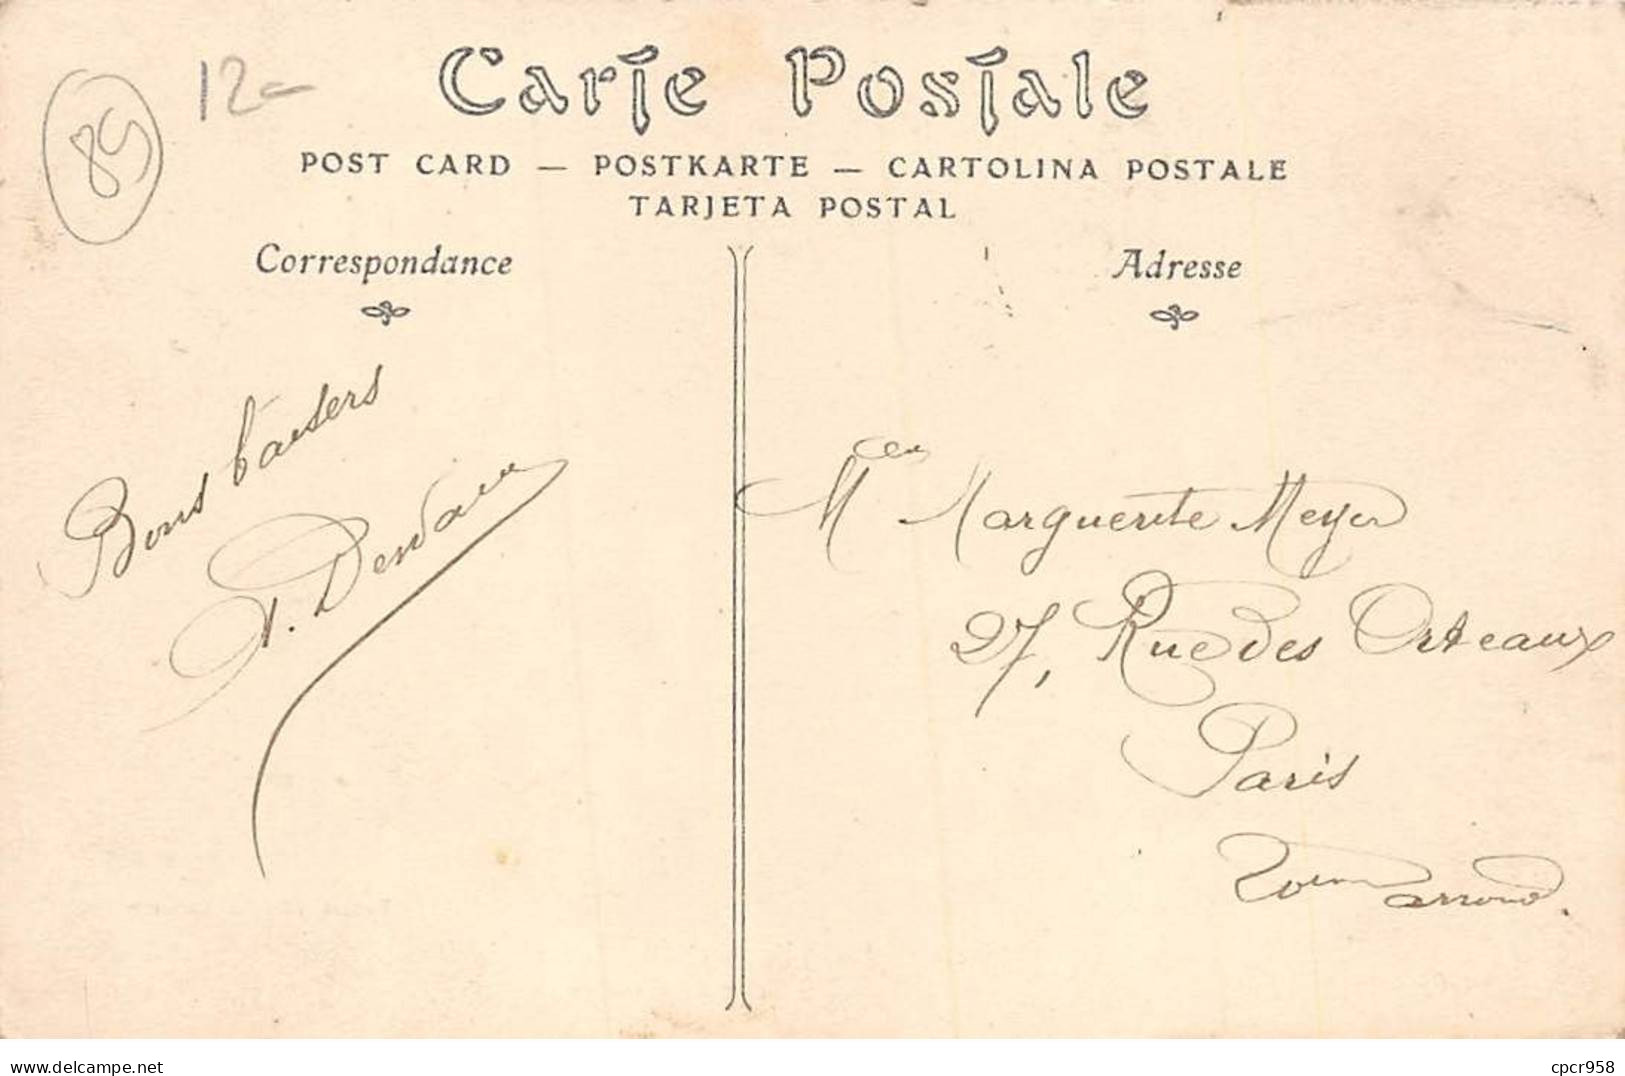 89
12-
Carte Postale
POST CARD — POSTKARTE — CARTOLINA POSTALE
TARJETA POSTAL
Correspondance
Adresse
Bons baisers
Mlle Marguerite Meyer
27, Rue des Orteaux
Paris
20em arrond.
delcampe.net
cpcr958